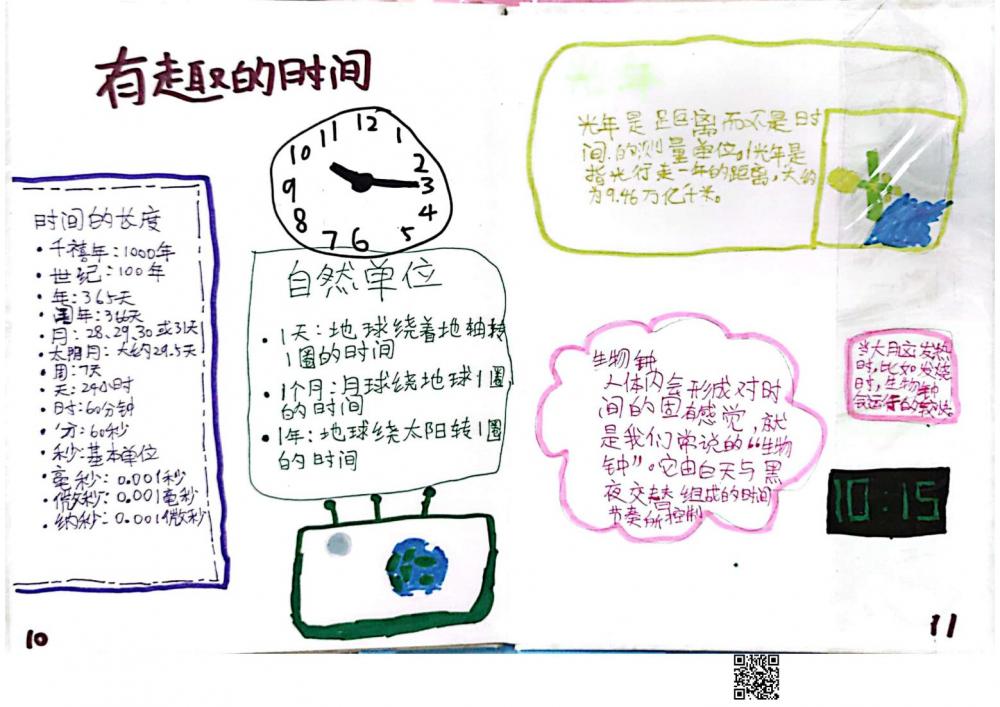 有趣的时间
时间的长度
•千禧年：1000年
•世纪：100年
•年：365天
•闰年：366天
•月：28、29、30或31天
•太阴月：大约29.5天
•周：7天
•天：24小时
•时：60分钟
•分：60秒
•秒：基本单位
•毫秒：0.001秒
•微秒：0.001毫秒
•纳秒：0.001微秒
12
11
1
10
2
9
3
8
4
7
6
5
自然单位
•1天：地球绕着地轴转
1圈的时间
•1个月：月球绕地球1圈
的时间
•1年：地球绕太阳转1圈
的时间
10
光年
光年是距离而不是时
间的测量单位。1光年是
指光行走一年的距离，大约
为9.46万亿千米。
生物钟
人体内会形成对时
间的固有感觉，就
是我们常说的“生物
钟”。它由白天与黑
夜交替组成的时间
节奏所控制
发热
时，比如发烧
时，生物钟
会运行的较快。
10:15
11